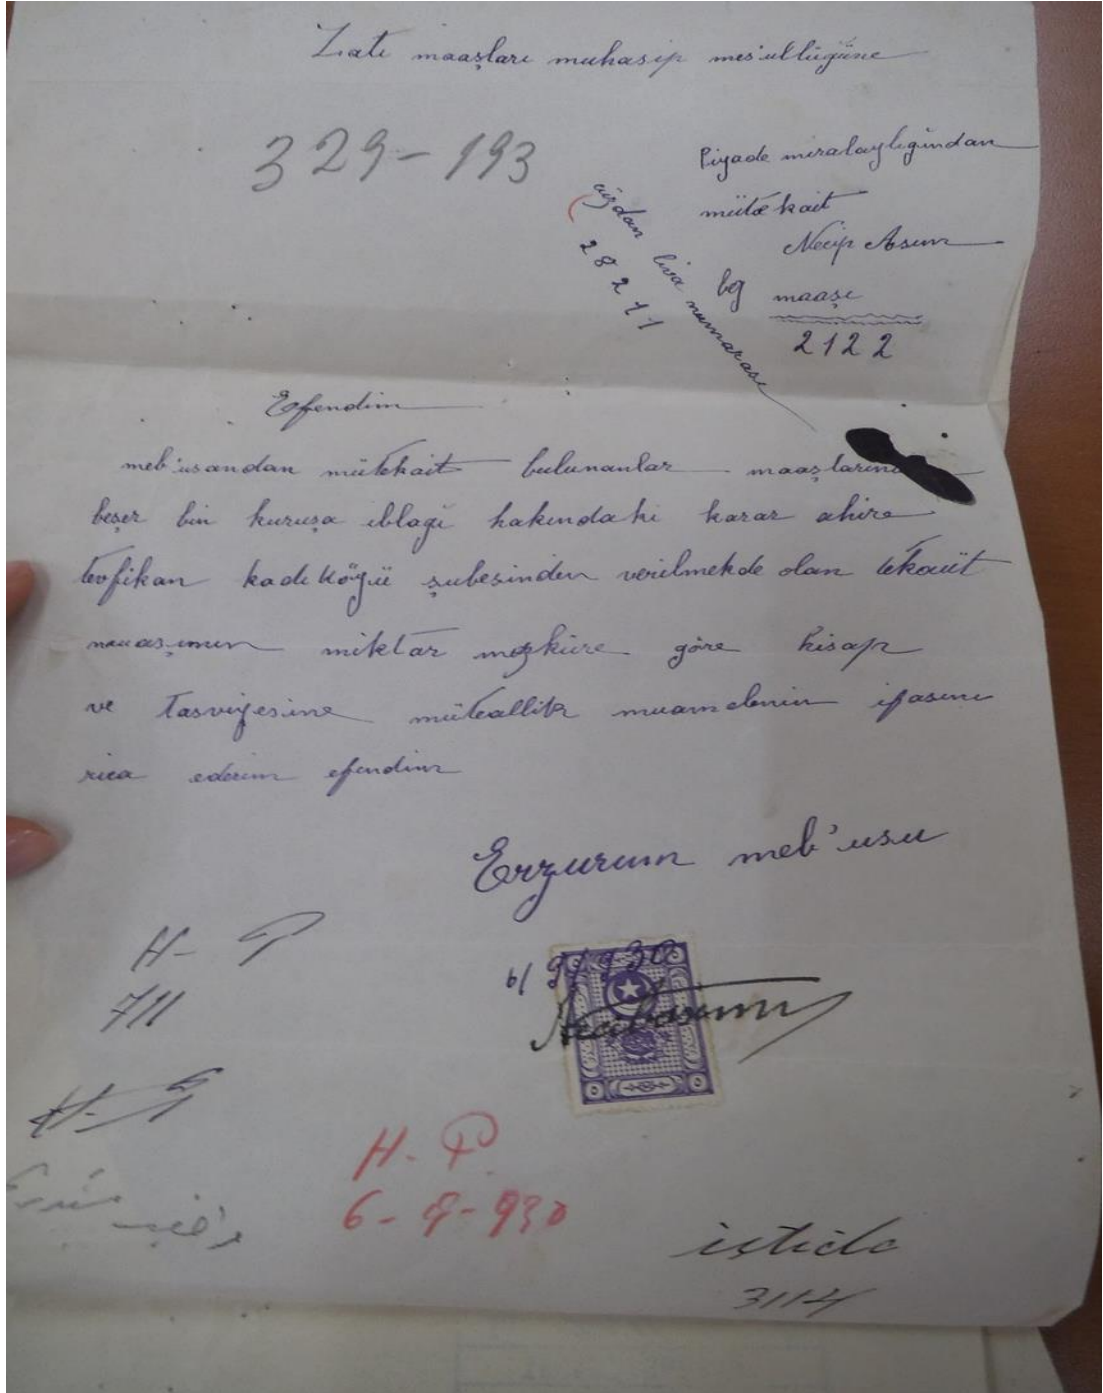 Zati maaşları muhasip mes'ullüğüne
329-193
Piyade miralaylığından
mütekait
Necip Asım
bg maaşı
2122
liva numarası
28211
Efendim
meb'usandan mütekkait bulunanlar maaşlarının
beşer bin kuruşa iblağı hakındaki karar ahire
tevfikan kadıköyü şubesinden verilmekde olan tekaüt
maaşımın miktar mezküre göre hisap
ve tasviyesine müteallik muamelenin ifasını
rica ederim efendim
Erzurum meb'usu
6/9/930
H- P
711
H. P.
6-9-930
istida
3114